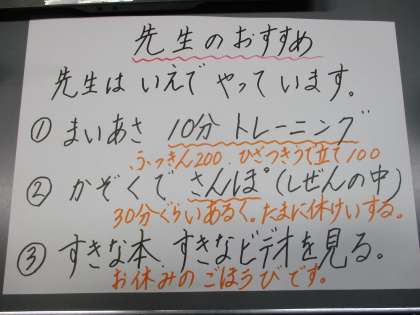 先生のおすすめ
先生は いえで やって います。
① まいあさ 10分 トレーニング
・ふっきん200 ・ひざつきうで立て100
② かぞくで さんぽ(しぜんの中)
30分ぐらいあるく。たまに休けいする。
③ すきな本、すきなビデオを見る。
お休みのごほうびです。